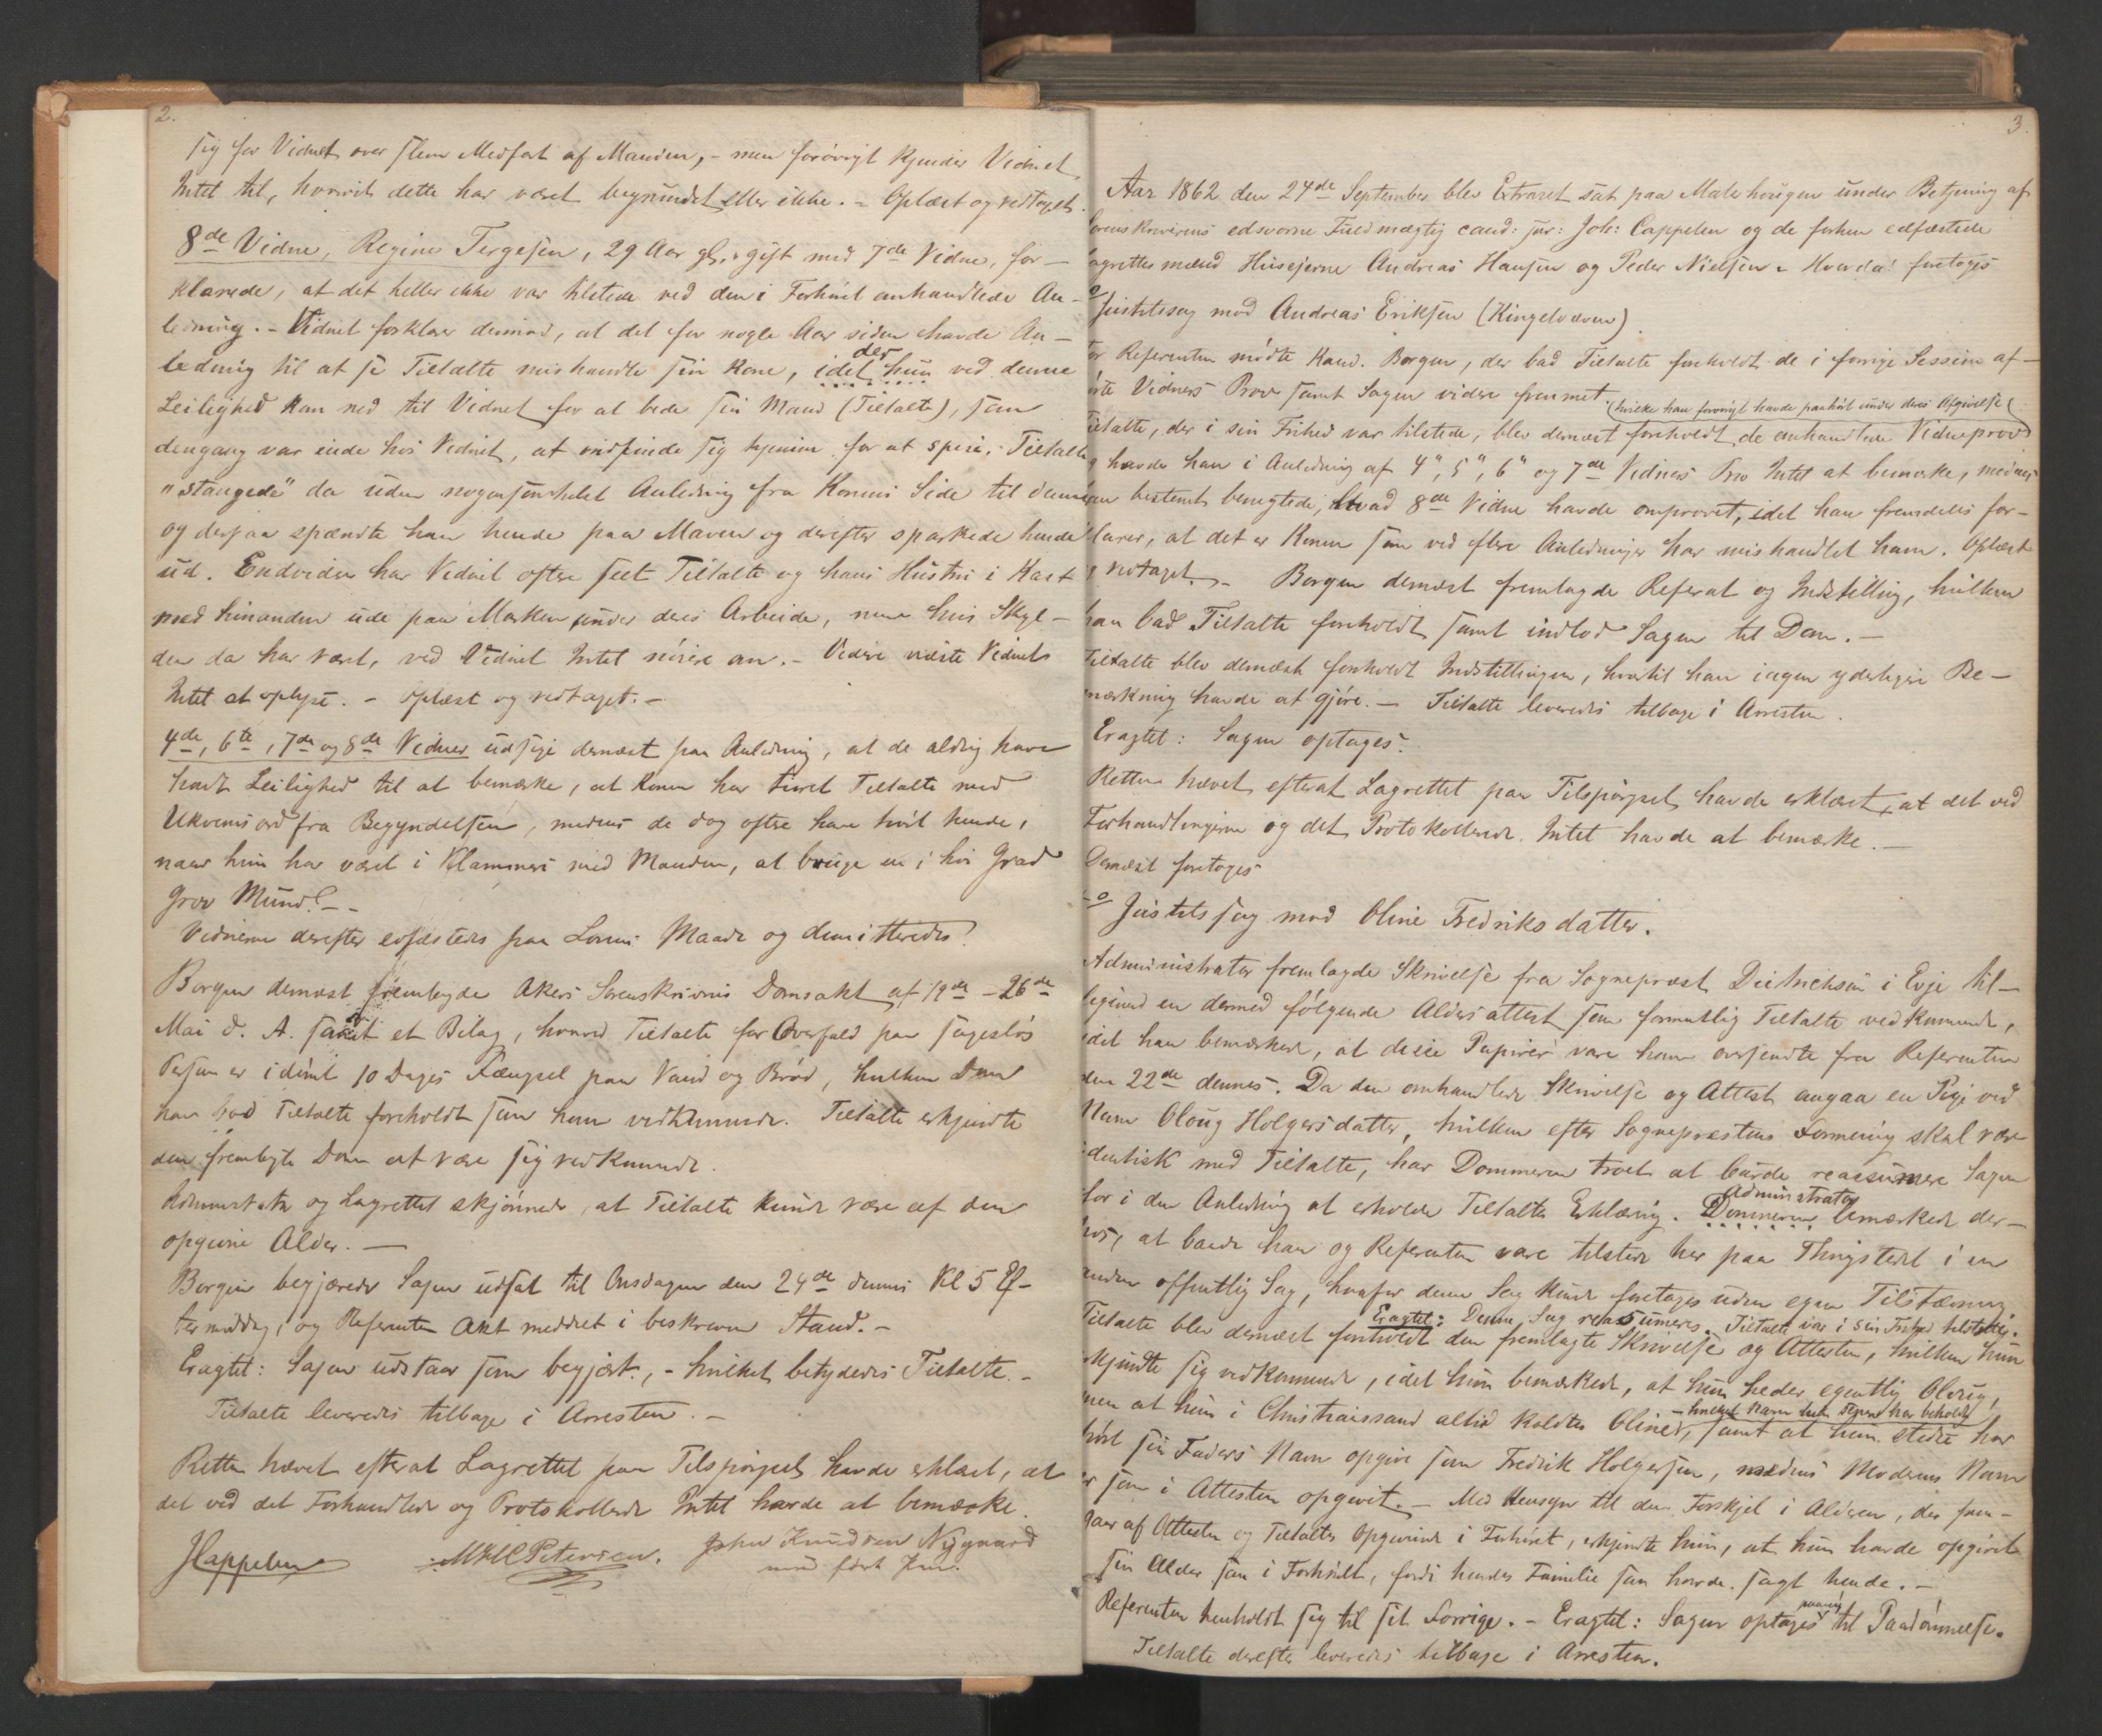 2.
sig for Vidnet over slem Medfart af Manden, - men forøvrigt kjender Vidnet
Intet til, hvorvidt dette har været begrundet eller ikke. - Oplæst og vedtaget.
8de Vidne, Regine Tergesen, 29 Aar gl., gift med 7de Vidne, for-
klarede, at det heller ikke var tilstede ved den i Forhøret omhandlede An-
ledning. - Vidnet forklarer derimod, at det for nogle Aar siden havde An-
ledning til at se Tiltalte mishandle sin Kone, idet hun der ved denne
Leilighed kom ned til Vidnet for at bede sin Mand (Tiltalte), som
dengang var inde hos Vidnet, at indfinde sig hjemme for at spise. Tiltalte
"stangede" da uden nogensomhelst Anledning fra Konens Side til denne
og derpaa spændte han hende paa Maven og derefter sparkede hende
ud. Endvidere har Vidnet oftere seet Tiltalte og hans Hustru i Kast
med hinanden ude paa Marken under deres Arbeide, men hvis Skyl-
den da har været, ved Vidnet Intet nøiere om. - Videre vidste Vidnet
Intet at oplyse. - Oplæst og vedtaget. -
4de, 6te, 7de og 8de Vidner udsige dernæst paa Anledning, at de aldrig have
havt Leilighed til at bemærke, at Konen har tirret Tiltalte med
Ukvemsord fra Begyndelsen, medens de dog oftere have hørt hende,
naar hun har været i Klammeri med Manden, at bruge en i høi Grad
grov Mund. -
Vidnerne derefter edfæstedes paa Lovens Maade og demitteredes.
Borgen dernæst fremlagde Akers Sorenskriveris Domsakt af 19de - 26de
Mai d. A. samt et Bilag, hvorved Tiltalte for Overfald paa sagesløs
Person er idømt 10 Dages Fængsel paa Vand og Brød, hvilken Dom
han bad Tiltalte foreholdt som ham vedkommende. Tiltalte erkjendte
den fremlagte Dom at være sig vedkommende.
Administrator og Lagrettet skjønnede, at Tiltalte kunde være af den
opgivne Alder. -
Borgen begjærede Sagen udsat til Onsdagen den 24de dennes Kl 5 Ef-
termiddag, og Referenten Akt meddelt i beskreven Stand. -
Eragtet: Sagen udstaar som begjært, - hvilket betydedes Tiltalte. -
Tiltalte leveredes tilbage i Arresten. -
Retten hævet efterat Lagrettet paa Tilspørgsel havde erklæret, at
det ved det Forhandlede og Protokollerede Intet havde at bemærke.
JCappelen MHCPetersen. John Knudsen Nygaard
med ført Pen.
3.
Aar 1862 den 24de September blev Extraret sat paa Malerhaugen under Betjening af
Sorenskriverens edsvorne Fuldmægtig cand: jur: Joh: Cappelen og de forhen edfæstede
Lagrettesmænd Huseierne Andreas Hansen og Peder Nielsen. - Hvorda foretoges
Justitssag mod Andreas Eriksen (Kingelvæven).
For Referenten mødte Kand. Borgen, der bad Tiltalte foreholdt de i forrige Session af-
hørte Vidners Prov samt Sagen videre fremmet.
(hvilke han forøvrigt havde paahørt under deres Afgivelse)
Tiltalte, der i sin Frihed var tilstede, blev dernæst foreholdt de omhandlede Vidneprov
og havde han i Anledning af 4", 5", 6" og 7de Vidners Prov Intet at bemærke, medens
han bestemt benegtede, hvad 8de Vidne havde omprovet, idet han fremdeles for-
klarer, at det er Konen som ved flere Anledninger har mishandlet ham. Oplæst
og vedtaget. - Borgen dernæst fremlagde Referat og Indstilling, hvilken
han bad Tiltalte foreholdt samt indlod Sagen til Dom. -
Tiltalte blev dernæst foreholdt Indstillingen, hvortil han ingen yderligere Be-
mærkning havde at gjøre. - Tiltalte leveredes tilbage i Arresten.
Eragtet: Sagen optages.
Retten hævet efterat Lagrettet paa Tilspørgsel havde erklæret, at det ved
Forhandlingerne og det Protokollerede Intet havde at bemærke. -
Dernæst foretoges
Justitssag mod Oline Fredriksdatter.
Administrator fremlagde Skrivelse fra Sogneprest Dietrichson i Evje til-
ligemed en dermed følgende Aldersattest som formentlig Tiltalte vedkommende,
idet han bemærkede, at disse Papirer vare ham oversendte fra Referenten
den 22de dennes. Da den omhandlede Skrivelse og Attest angaa en Pige ved
Navn Oloug Holgersdatter, hvilken efter Sogneprestens Formening skal være
identisk med Tiltalte, har Dommeren troet at burde reassumere Sagen
for i den Anledning at erholde Tiltaltes Erklæring. Dommeren Administrator bemærkede der-
hos, at baade han og Referenten vare tilstede her paa Thingstedet i en
anden offentlig Sag, hvorfor denne Sag kunde foretages uden egen Tilstævning.
Eragtet: Denne Sag reassumeres. Tiltalte var i sin Frihed tilstede.
Tiltalte blev dernæst foreholdt den fremlagte Skrivelse og Attesten, hvilken hun
erkjendte sig vedkommende, idet hun bemærkede, at hun heder egentlig Oloug,
men at hun i Christianssand altid kaldtes Oline, - hvilket Navn hun siden har beholdt - samt at hun stedse har
hørt sin Faders Navn opgive som Fredrik Holgersen, medens Moderens Navn
er som i Attesten opgivet. - Med Hensyn til den Forskjel i Alderen, der frem-
gaar af Attesten og Tiltaltes Opgivende i Forhøret, erkjendte hun, at hun havde opgivet
sin Alder som i Forhøret, fordi hendes Familie saa havde sagt hende. -
Referenten henholdt sig til sit Forrige. - Eragtet: Sagen optages paany til Paadømmelse.
Tiltalte derefter leveredes tilbage i Arresten.